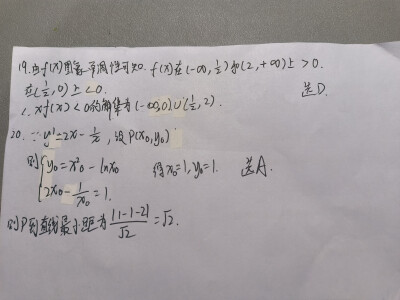 19. 由f(x)图象单调性可知. f'(x)在(-∞, 1/2)和(2, +∞)上 > 0.
在(1/2, 0)上 < 0.
∴ xf'(x) < 0的解集为(-∞, 0)∪(1/2, 2). 选D.
20. ∵ y' = 2x - 1/x, 设P(x₀, y₀)
则{y₀ = x₀² - lnx₀
2x₀ - 1/x₀ = 1. 得x₀=1, y₀=1. 选A.
则P到直线最小距为 |1-1-2|/√2 = √2.